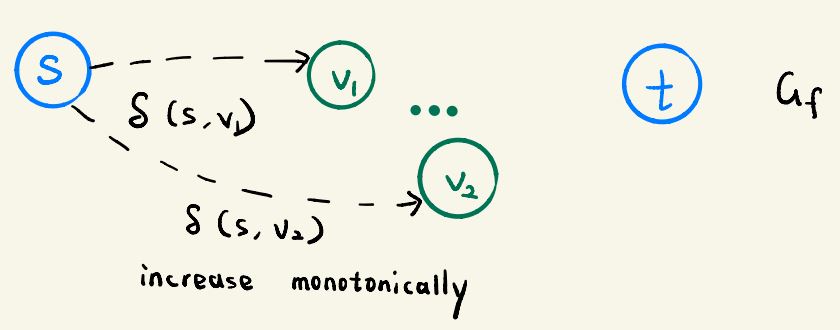 S
V₁
t
G_f
δ (s, v₁)
V₂
δ (s, v₂)
increase monotonically